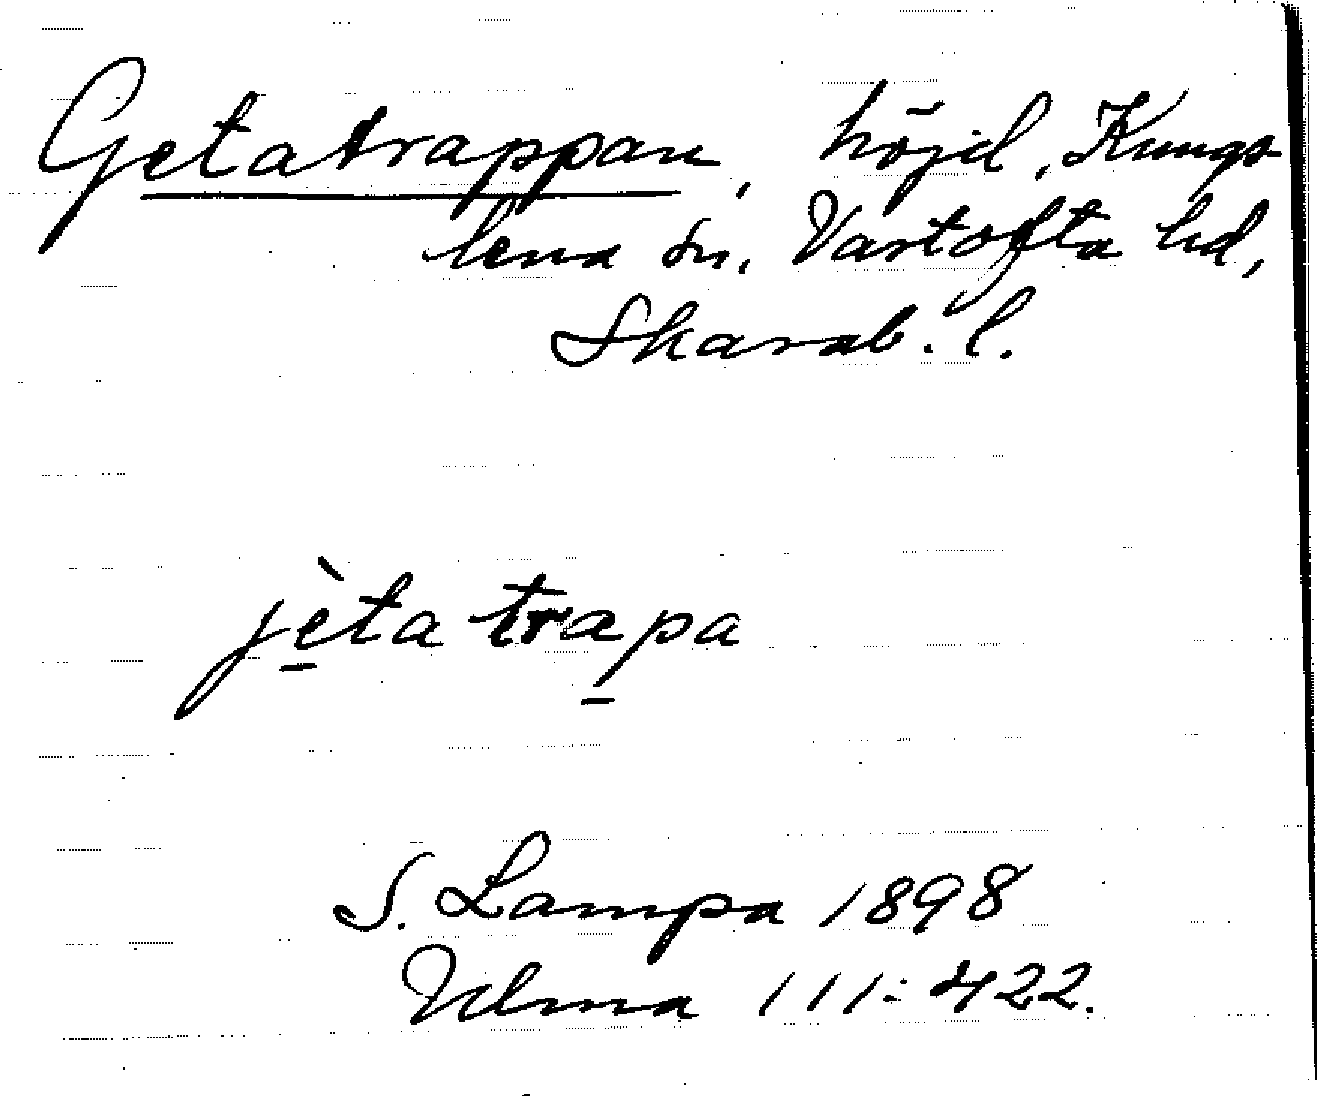 Getatrappan, höjd, Kungs-
lena sn, Vartofta hd,
Skarab. l.
jèta trapa
S. Lampa 1898
Ulma 111:422.